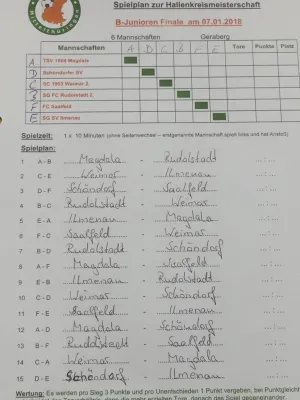 Spielplan zur Hallenkreismeisterschaft
B-Junioren Finale am 07.01.2018
6 Mannschaften Geraberg
Mannschaften A D C B F E Tore Punkte Platz
A TSV 1864 Magdala
D Schöndorfer SV
C SC 1903 Weimar 2.
B SG FC Rudolstadt 2.
F FC Saalfeld
E SG SV Ilmenau
Spielzeit: 1 x 10 Minuten (ohne Seitenwechsel – erstgenannte Mannschaft spielt links und hat Anstoß)
Spielplan:
1 A - B Magdala - Rudolstadt ...:...
2 C - E Weimar - Ilmenau ...:...
3 D - F Schöndorf - Saalfeld ...:...
4 B - C Rudolstadt - Weimar ...:...
5 E - A Ilmenau - Magdala ...:...
6 F - C Saalfeld - Weimar ...:...
7 B - D Rudolstadt - Schöndorf ...:...
8 A - F Magdala - Saalfeld ...:...
9 E - B Ilmenau - Rudolstadt ...:...
10 C - D Weimar - Schöndorf ...:...
11 F - E Saalfeld - Ilmenau ...:...
12 A - D Magdala - Schöndorf ...:...
13 B - F Rudolstadt - Saalfeld ...:...
14 C - A Weimar - Magdala ...:...
15 D - E Schöndorf - Ilmenau ...:...
Wertung: Es werden pro Sieg 3 Punkte und pro Unentschieden 1 Punkt vergeben, bei Punktgleich